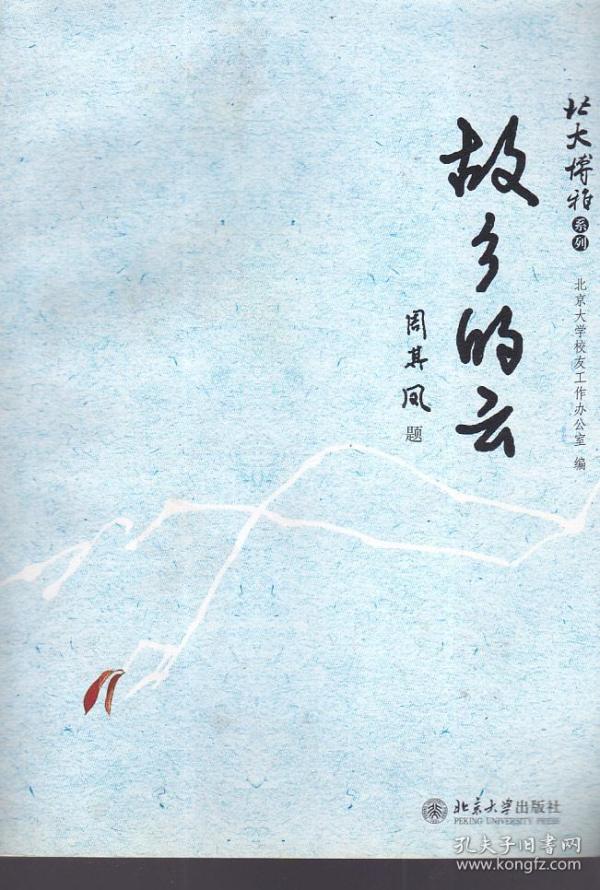 北大博雅系列
北京大学校友工作办公室 编
故乡的云
周其凤题
北京大学出版社
PEKING UNIVERSITY PRESS
孔夫子旧书网
www.kongfz.com